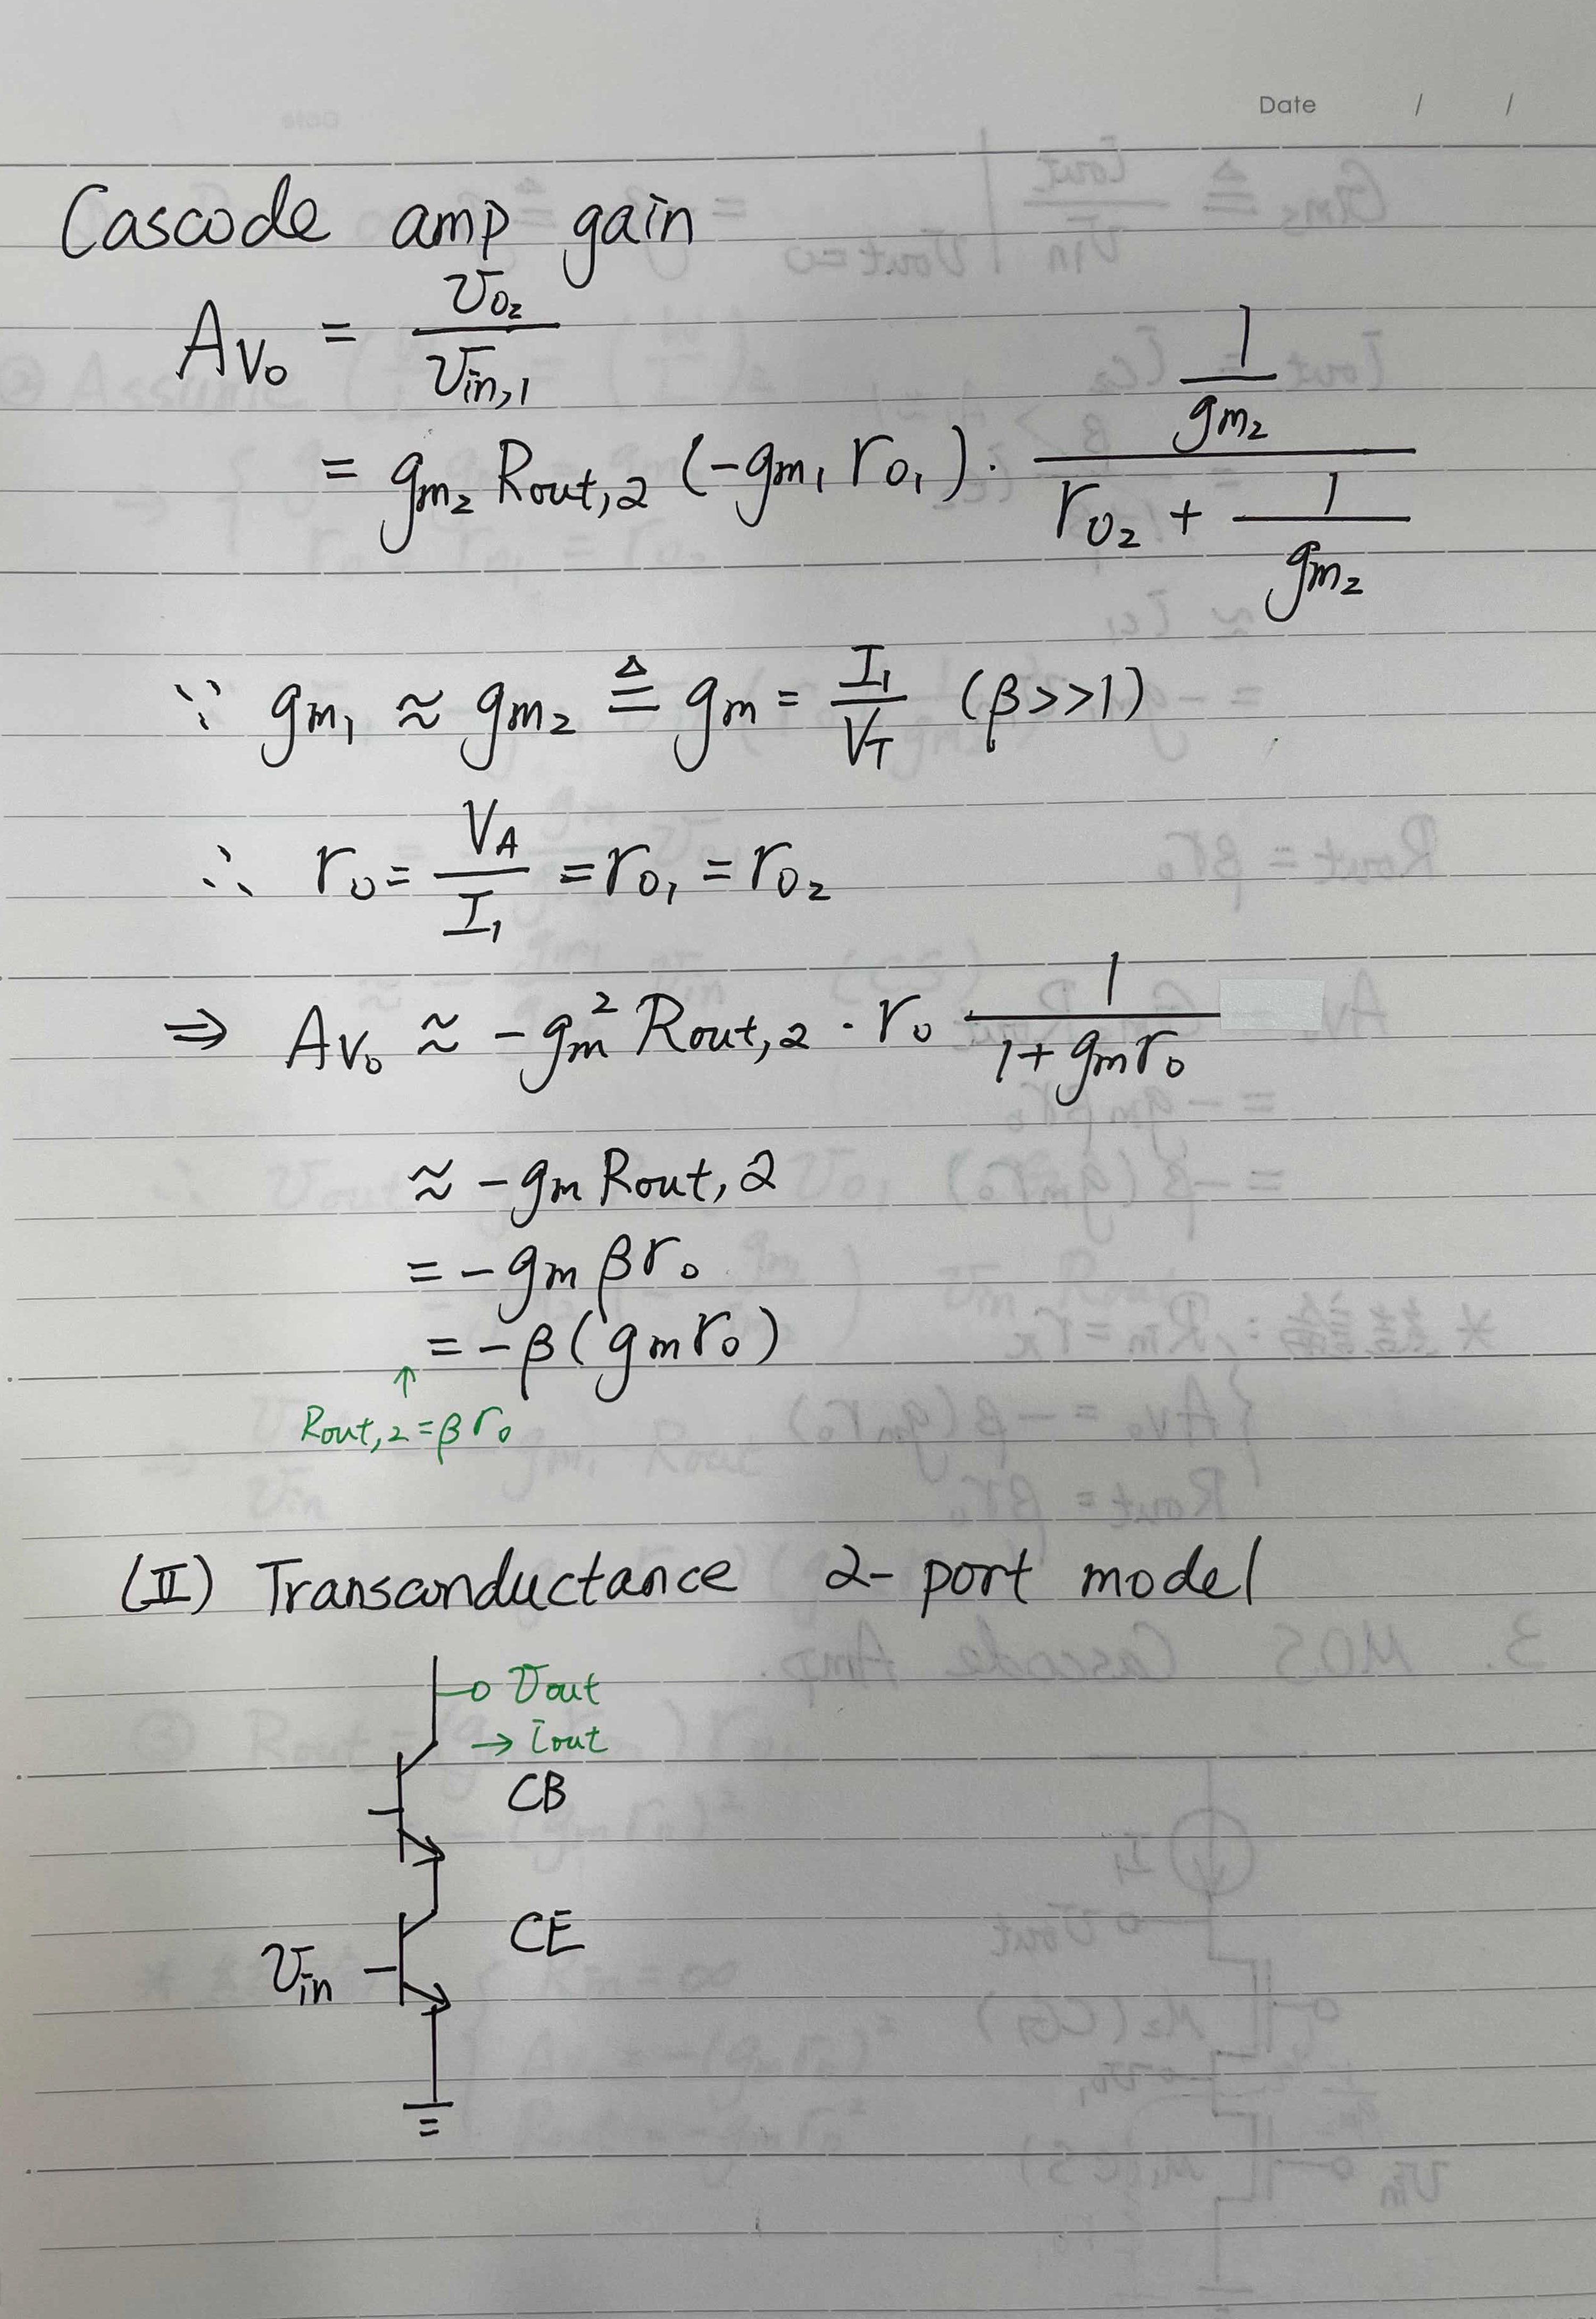 Date / /
Cascode amp gain
Av₀ = v₀₂ / vin,1
= gm₂ Rout,2 (-gm₁ r₀₁) · (1/gm₂) / (r₀₂ + 1/gm₂)
∵ gm₁ ≈ gm₂ ≜ gm = I₁/V_T (β>>1)
∴ r₀ = V_A/I₁ = r₀₁ = r₀₂
⇒ Av₀ ≈ -gm² Rout,2 · r₀ 1/(1+gmr₀)
≈ -gm Rout,2
= -gm βr₀
= -β(gmr₀)
↑
Rout,2 = βr₀
(II) Transconductance 2-port model
vout
→ iout
CB
CE
vin